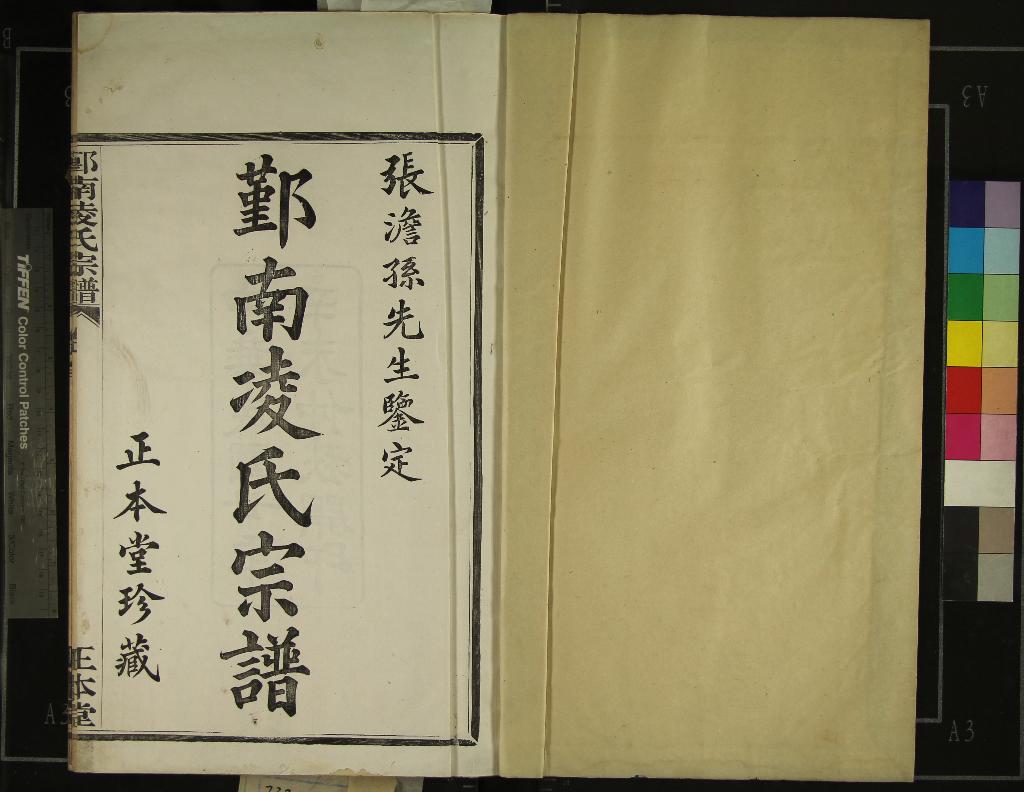 張澹孫先生鑒定
鄞南凌氏宗譜
正本堂珍藏
鄞南凌氏宗譜
正本堂
TIFFEN Color Control Patches
A3
A3
A3